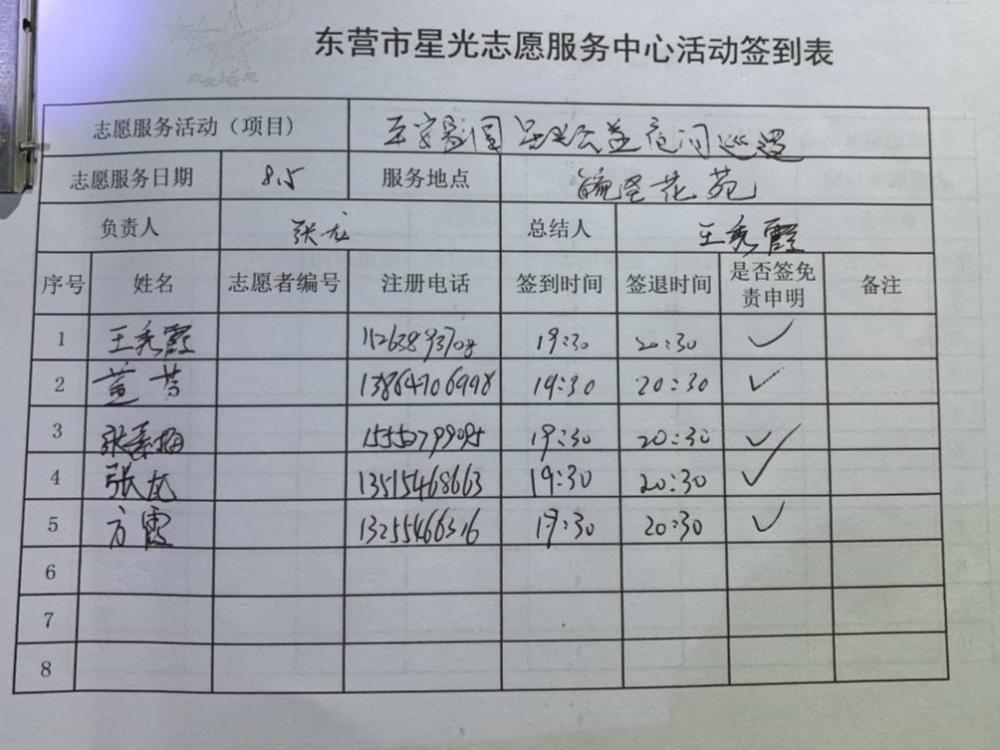 东营市星光志愿服务中心活动签到表
志愿服务活动（项目） 平安家园 星光公益夜间巡逻
志愿服务日期 8.5 服务地点 花苑
负责人 张龙 总结人 王秀霞
序号 姓名 志愿者编号 注册电话 签到时间 签退时间 是否签免责申明 备注
1 王秀霞 19:30 20:30 ✓
2 13864706998 19:30 20:30 ✓
3 19:30 20:30 ✓
4 张龙 13515468663 19:30 20:30 ✓
5 方霞 13255466316 19:30 20:30 ✓
6
7
8